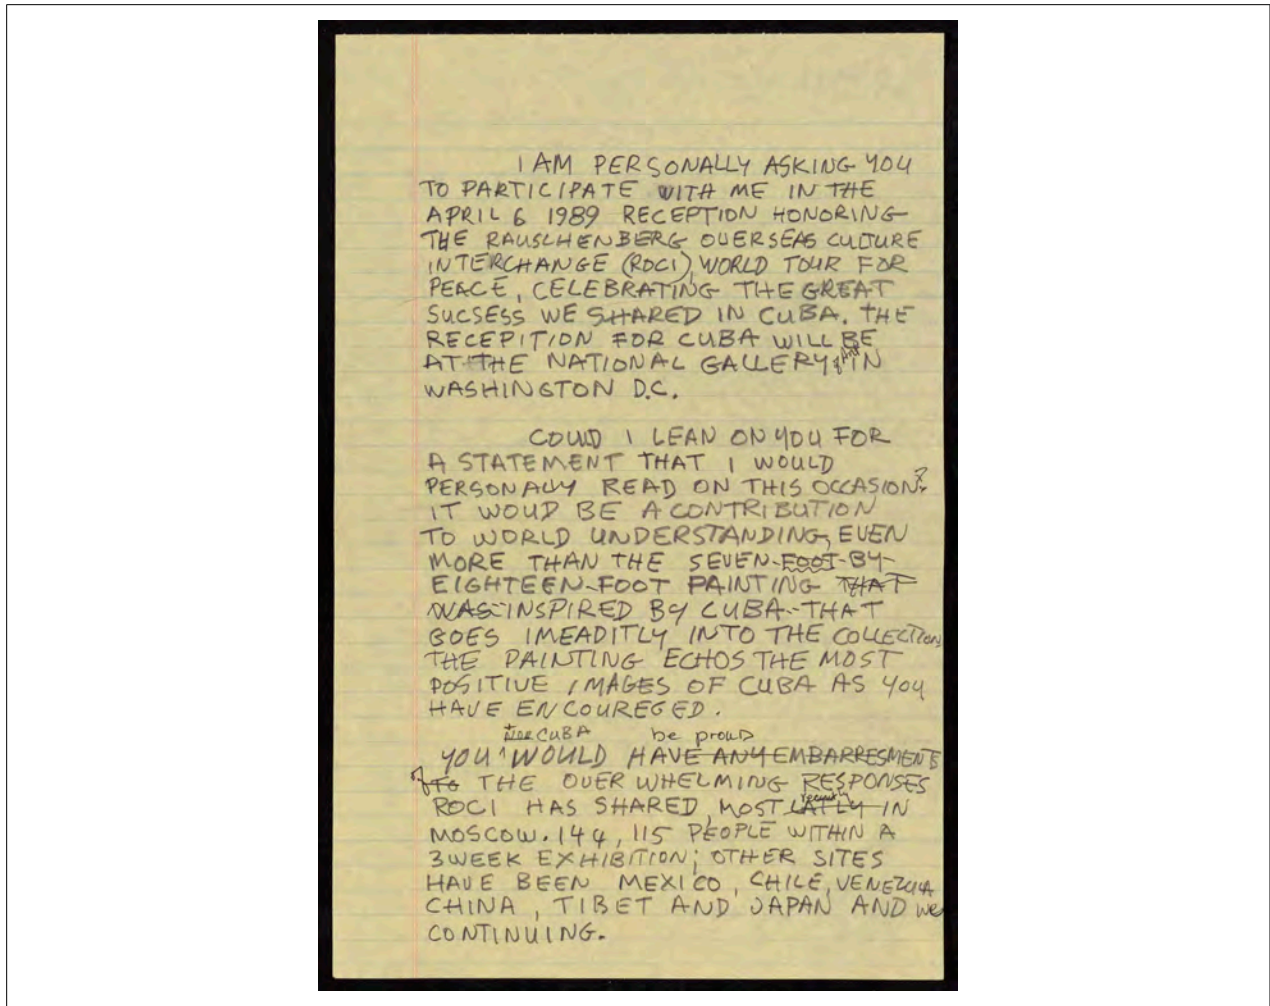 I AM PERSONALLY ASKING YOU
TO PARTICIPATE WITH ME IN THE
APRIL 6 1989 RECEPTION HONORING
THE RAUSCHENBERG OVERSEAS CULTURE
INTERCHANGE (ROCI), WORLD TOUR FOR
PEACE, CELEBRATING THE GREAT
SUCSESS WE SHARED IN CUBA. THE
RECEPITION FOR CUBA WILL BE
AT THE NATIONAL GALLERY of Art IN
WASHINGTON D.C.
COULD I LEAN ON YOU FOR
A STATEMENT THAT I WOULD
PERSONALLY READ ON THIS OCCASION?
IT WOUD BE A CONTRIBUTION
TO WORLD UNDERSTANDING, EVEN
MORE THAN THE SEVEN-FOOT-BY-
EIGHTEEN-FOOT PAINTING THAT
WAS INSPIRED BY CUBA-THAT
GOES IMEADITLY INTO THE COLLECTION
THE PAINTING ECHOS THE MOST
POSITIVE IMAGES OF CUBA AS YOU
HAVE ENCOUREGED.
CUBA be prouD
YOU WOULD HAVE ANY EMBARRESMENTS
of TO THE OVER WHELMING RESPONSES
recently
ROCI HAS SHARED, MOST LATLY IN
MOSCOW. 144,115 PEOPLE WITHIN A
3 WEEK EXHIBITION; OTHER SITES
HAVE BEEN MEXICO, CHILE, VENEZULA
CHINA, TIBET AND JAPAN AND we
CONTINUING.